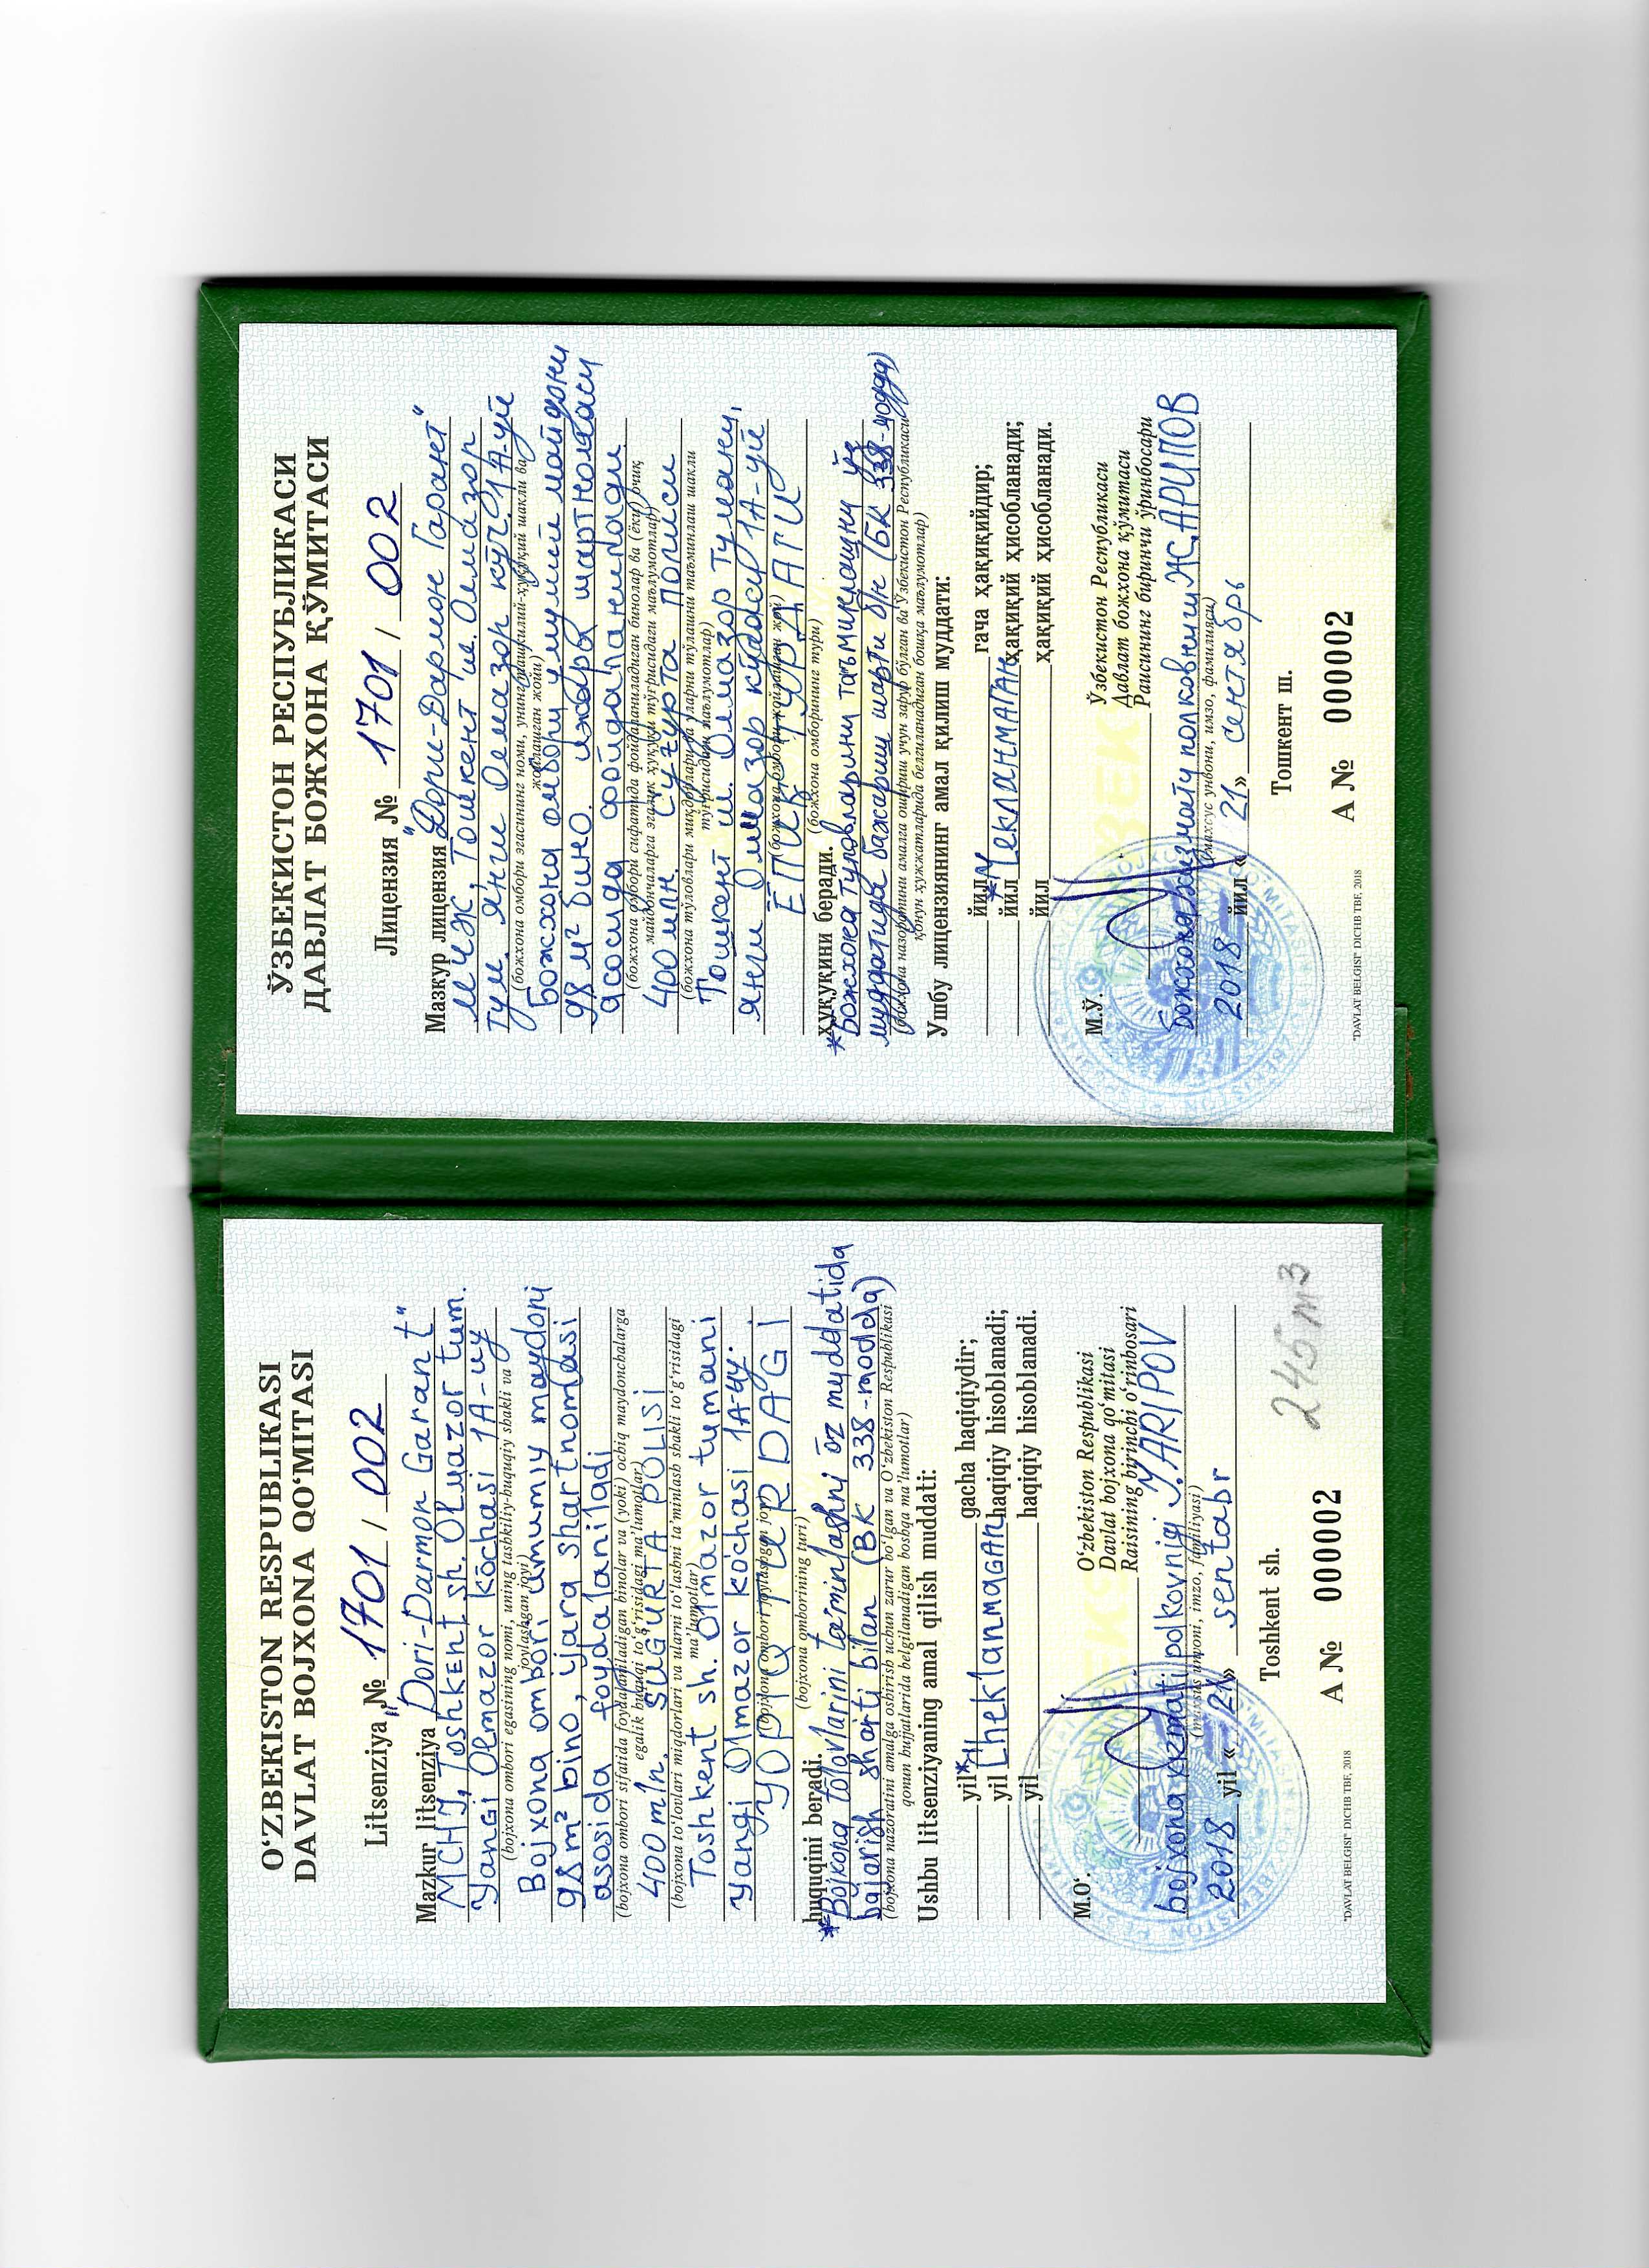 O‘ZBEKISTON RESPUBLIKASI
DAVLAT BOJXONA QO‘MITASI
Litsenziya № 1701 / 002
Mazkur litsenziya "Dori-Darmon Garant"
MCHJ, Toshkent sh. Olmazor tum.
Yangi Olmazor kõchasi 1A-uy
(bojxona ombori egasining nomi, uning tashkiliy-huquqiy shakli va
joylashgan joyi)
Bojxona ombori umumiy maydoni
98 m² bino, ijara shartnomasi
asosida foydalaniladi
(bojxona ombori sifatida foydalaniladigan binolar va (yoki) ochiq maydonchalarga
egalik huquqi to‘g‘risidagi ma’lumotlar)
400 mln. SUG'URTA POLISI
(bojxona to‘lovlari miqdorlari va ularni to‘lashni ta’minlash shakli to‘g‘risidagi
ma’lumotlar)
Toshkent sh. Olmazor tumani
yangi Olmazor ko'chasi 1A-uy.
(bojxona ombori joylashgan joy)
YOPIQ TURDAGI
(bojxona omborining turi)
huquqini beradi.
*Bojxona tõlovlarini ta'minlashni õz myddatida
bajarish sharti bilan (BK 338-modda)
(bojxona nazoratini amalga oshirish uchun zarur bo‘lgan va O‘zbekiston Respublikasi
qonun hujjatlarida belgilanadigan boshqa ma’lumotlar)
Ushbu litsenziyaning amal qilish muddati:
yil gacha haqiqiydir;
yil CheklanmaGAN haqiqiy hisoblanadi;
yil haqiqiy hisoblanadi.
M.O‘.
O‘zbekiston Respublikasi
Davlat bojxona qo‘mitasi
Raisining birinchi o‘rinbosari
bojxona xizmati polkovnigi J.ARIPOV
(maxsus unvoni, imzo, familiyasi)
2018 yil « 21 » sentabr
Toshkent sh.
245 m3
A № 000002
"DAVLAT BELGISI" DICHB TBF, 2018
ЎЗБЕКИСТОН РЕСПУБЛИКАСИ
ДАВЛАТ БОЖХОНА ҚЎМИТАСИ
Лицензия № 1701 / 002
Мазкур лицензия "Дори-Дармон Гарант"
МЧЖ, Тошкент ш. Олмазор
тум. янги Олмазор кўч. 1А-уй
(божхона омбори эгасининг номи, унинг ташкилий-ҳуқуқий шакли ва
жойлашган жойи)
Божхона омбори умумий майдони
98 м² бино. ижара шартномаси
асосида фойдаланилади.
(божхона омбори сифатида фойдаланиладиган бинолар ва (ёки) очиқ
майдончаларга эгалик ҳуқуқи тўғрисидаги маълумотлар)
400 млн. Суғурта полиси
(божхона тўловлари миқдорлари ва уларни тўлашни таъминлаш шакли
тўғрисидаги маълумотлар)
Тошкент ш. Олмазор тумани,
янги Олмазор кўчаси 1А-уй
(божхона омбори жойлашган жой)
ЁПИҚ ТУРДАГИ
(божхона омборининг тури)
ҳуқуқини беради.
*Божхона тўловларини таъминлашни ўз
муддатида бажариш шарти б/н (БК 338-модда)
(божхона назоратини амалга ошириш учун зарур бўлган ва Ўзбекистон Республикаси
қонун ҳужжатларида белгиланадиган бошқа маълумотлар)
Ушбу лицензиянинг амал қилиш муддати:
йил гача ҳақиқийдир;
йил ЧекланМАГАН ҳақиқий ҳисобланади;
йил ҳақиқий ҳисобланади.
М.Ў.
Ўзбекистон Республикаси
Давлат божхона қўмитаси
Раисининг биринчи ўринбосари
божхона хизмати полковниги Ж.АРИПОВ
(махсус унвони, имзо, фамилияси)
2018 йил « 21 » сентябрь
Тошкент ш.
А № 000002
"DAVLAT BELGISI" DICHB TBF, 2018